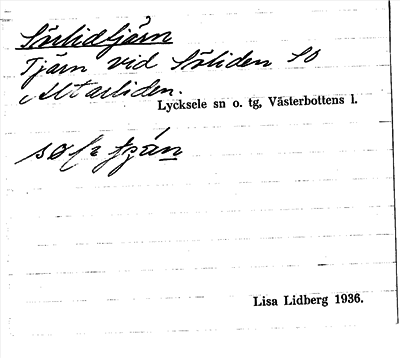 Sörlidtjärn
Tjärn vid Söliden SO
Altarliden.
Lycksele sn o. tg, Västerbottens l.
Lisa Lidberg 1936.